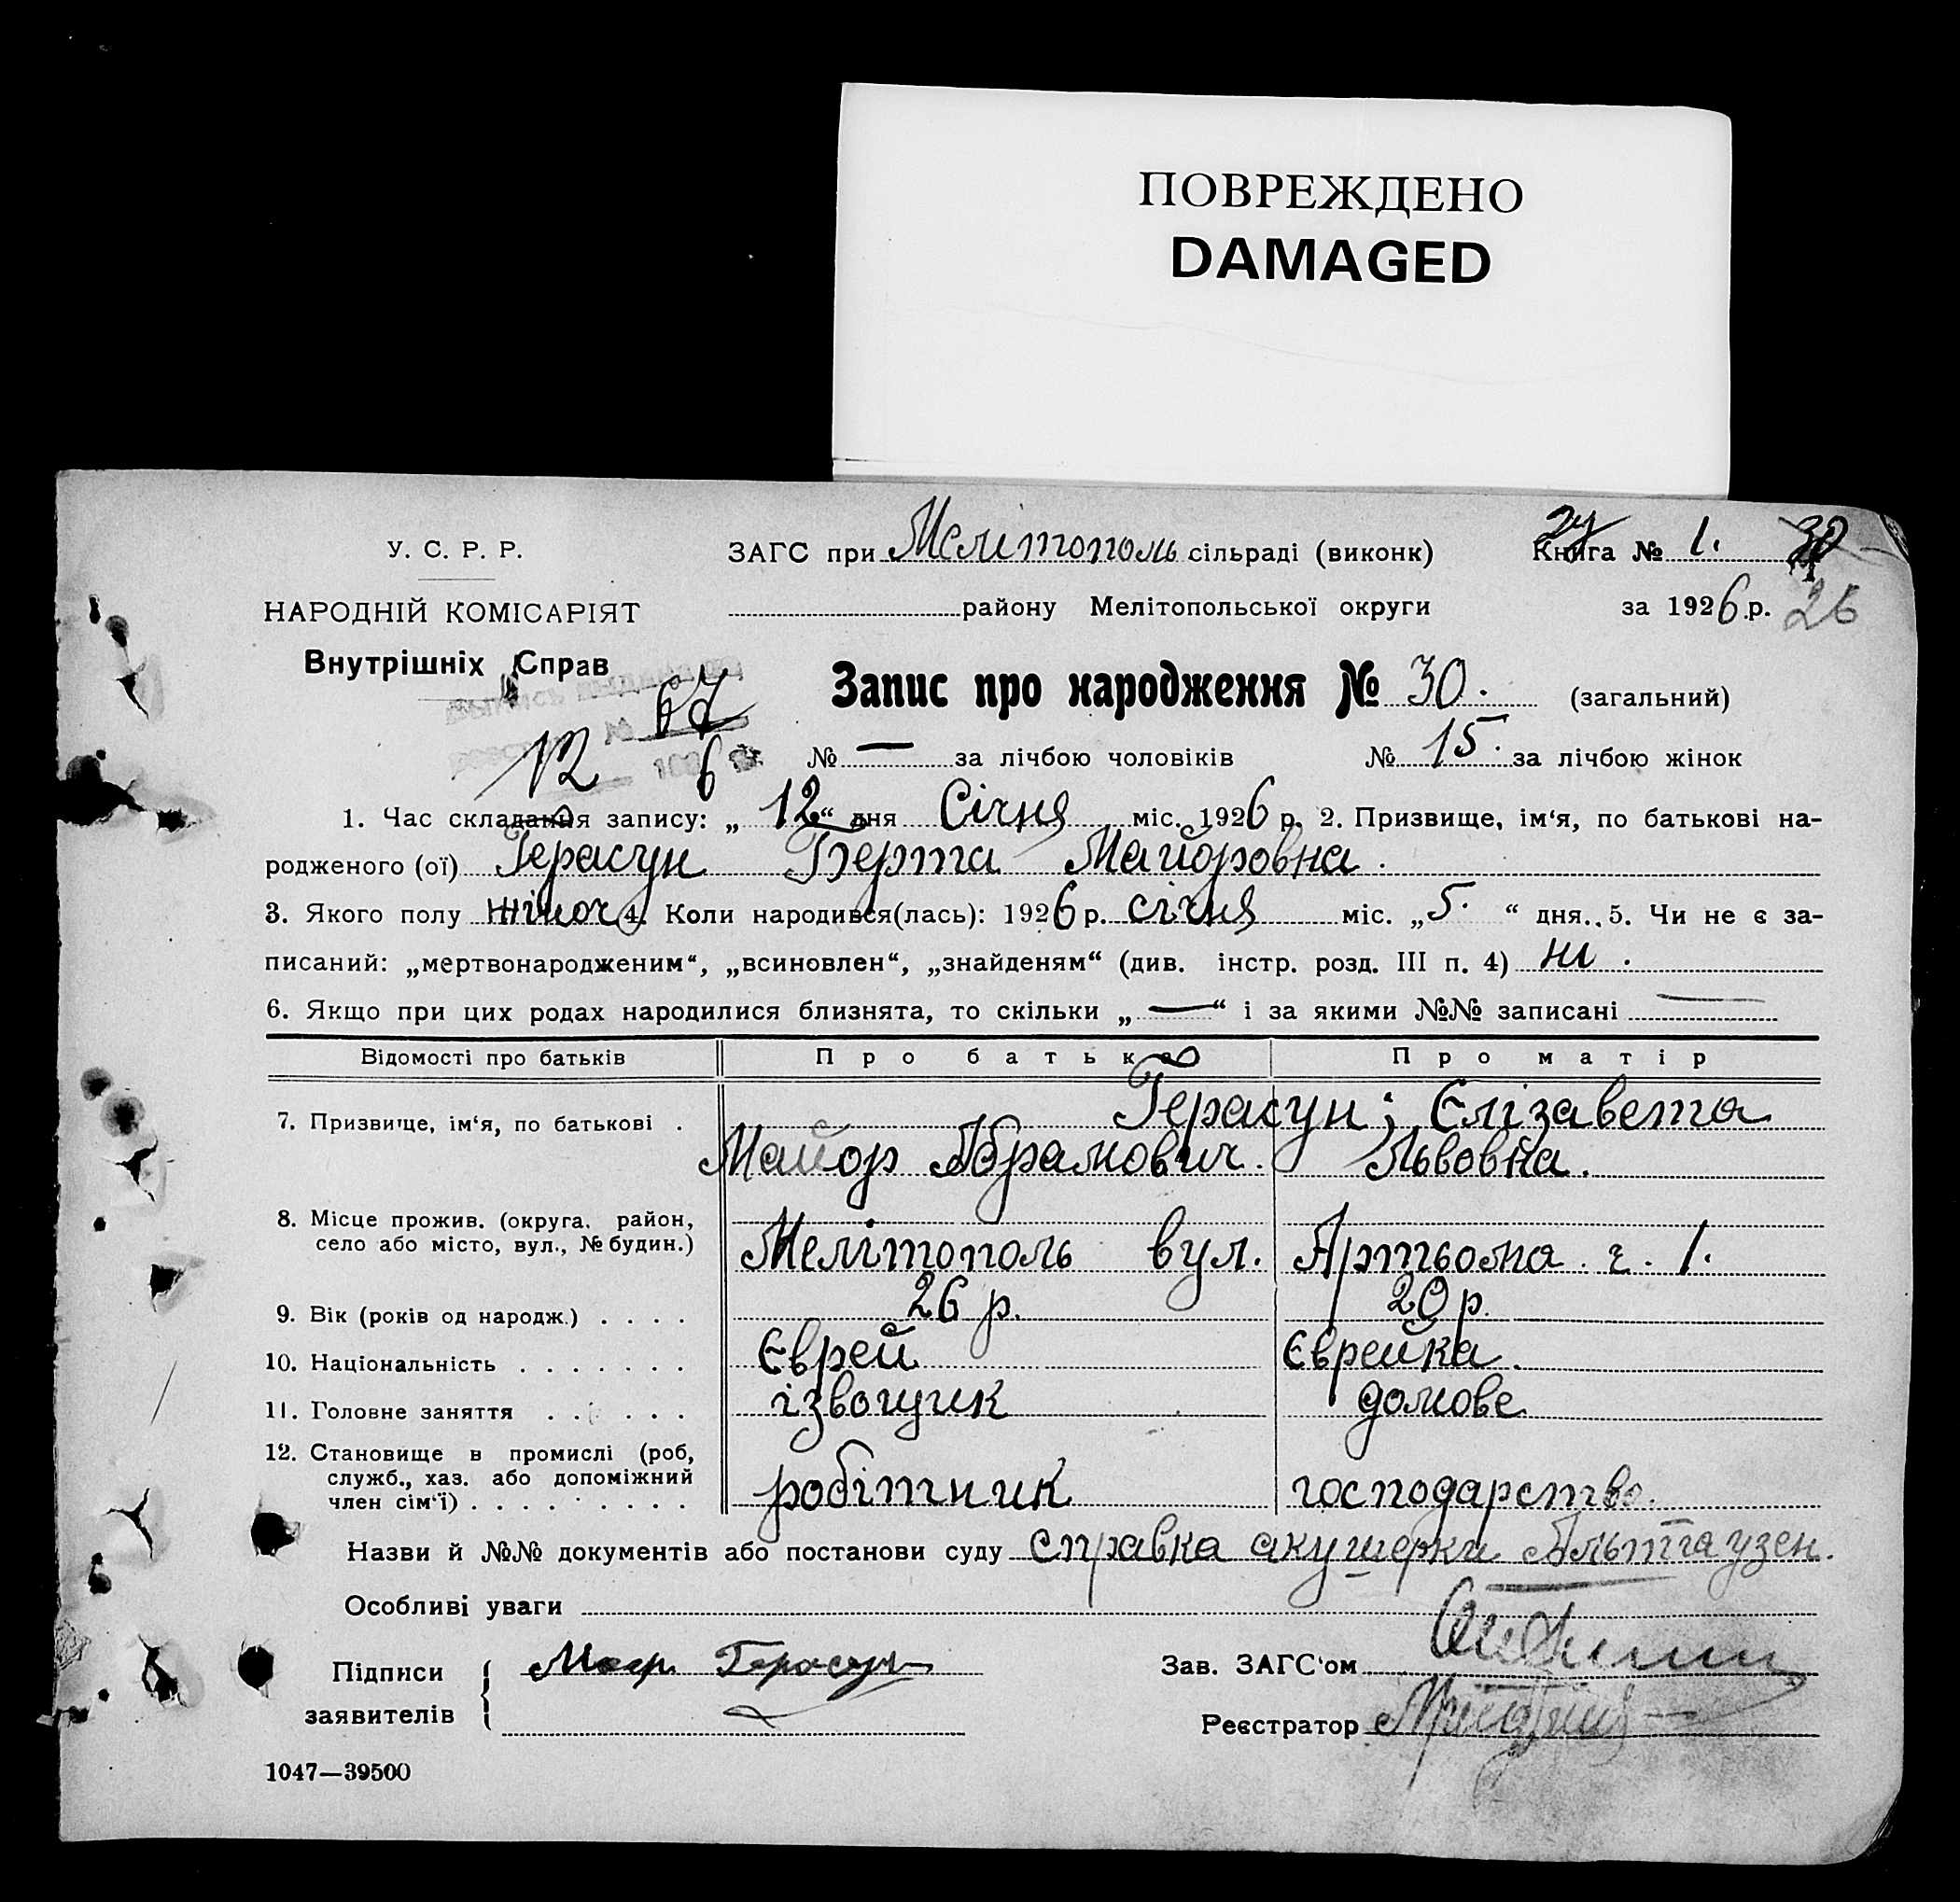 ПОВРЕЖДЕНО
DAMAGED
У. С. Р. Р.
НАРОДНІЙ КОМІСАРІЯТ
Внутрішніх Справ
ЗАГС при Мелітополь сільраді (виконк)
Книга № 1. 30
27
району Мелітопольської округи за 1926 р. 26
Запис про народження № 30. (загальний)
67
12 6
№ — за лічбою чоловіків № 15. за лічбою жінок
1. Час складання запису: „12“ дня Січня міс. 1926 р. 2. Призвище, ім‘я, по батькові на-
родженого (ої) Герасун Берта Майоровна.
3. Якого полу жіноч 4. Коли народився(лась): 1926 р. січня міс. „5.“ дня. 5. Чи не є за-
писаний: „мертвонародженим“, „всиновлен“, „знайденям“ (див. інстр. розд. III п. 4) ні.
6. Якщо при цих родах народилися близнята, то скільки „—“ і за якими №№ записані —
Відомості про батьків Про батька Про матір
7. Призвище, ім‘я, по батькові . Герасун; Єлізавета
Майор Абрамович. Львовна.
8. Місце прожив. (округа, район,
село або місто, вул., № будин.) Мелітополь вул. Артьома ч. 1.
9. Вік (років од народж.) . . . . 26 р. 20 р.
10. Національність . . . . . . . Єврей Єврейка.
11. Головне заняття . . . . . ізвощик домове
12. Становище в промислі (роб,
служб., хаз. або допоміжний
член сім‘ї) . . . . . . . . . робітник господарство.
Назви й №№ документів або постанови суду справка акушерки Альтгаузен.
Особливі уваги
Підписи
заявителів
Маер Герасун
Зав. ЗАГС‘ом
Реєстратор
1047—39500